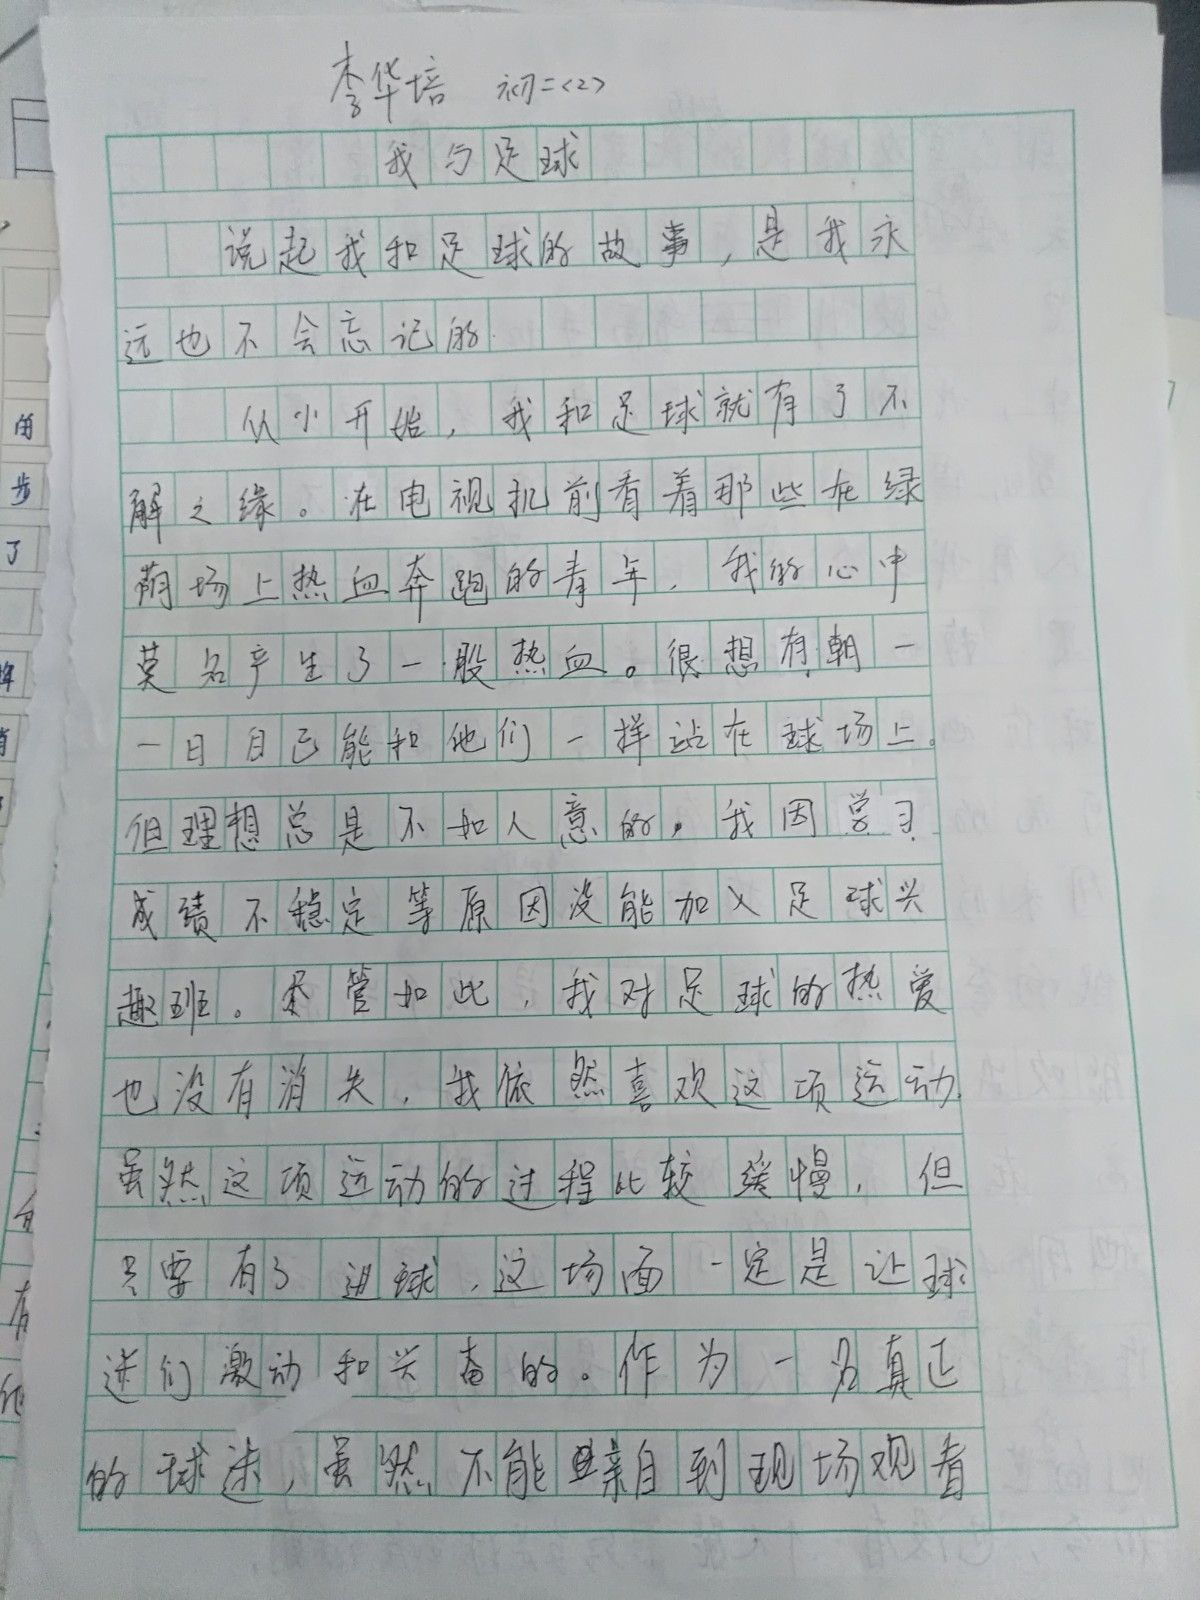 李华培 初二<2>
我与足球
说起我和足球的故事,是我永
远也不会忘记的.
从小开始,我和足球就有了不
解之缘。在电视机前看着那些在绿
荫场上热血奔跑的青年,我的心中
莫名产生了一股热血。很想有朝一
一日自己能和他们一样站在球场上。
但理想总是不如人意的。我因学习
成绩不稳定等原因没能加入足球兴
趣班。尽管如此,我对足球的热爱
也没有消失,我依然喜欢这项运动.
虽然这项运动的过程比较缓慢,但
只要有了进球,这场面一定是让球
迷们激动和兴奋的。作为一名真正
的球迷,虽然不能亲自到现场观看
由
步
了
有